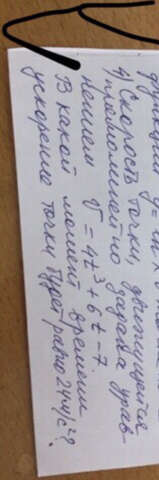 4) Скорость точки, движущейся
прямолинейно задана урав-
нением V = 4t³ + 6t - 7
В какой момент времени
ускорение точки будет равно 24м/с²?